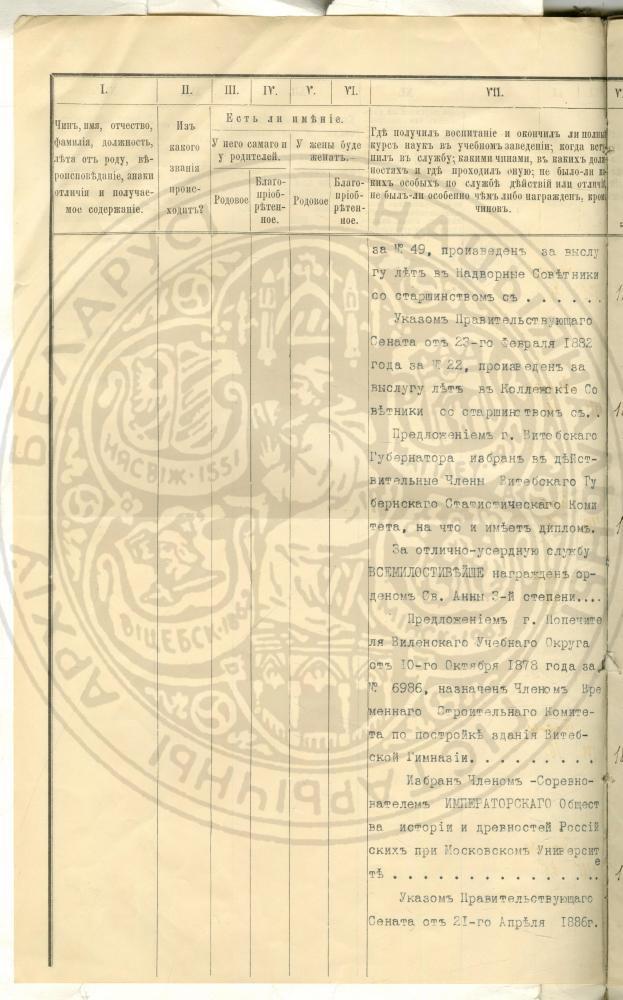 I.
II.
III.
IV.
V.
VI.
VII.
Чинъ, имя, отчество,
фамилія, должность,
лѣта отъ роду, вѣ-
роисповѣданіе, знаки
отличія и получае-
мое содержаніе.
Изъ
какого
званія
проис-
ходитъ?
Есть ли имѣніе.
У него самаго и
у родителей.
У жены буде
женатъ.—
Родовое
Благо-
пріоб-
рѣтен-
ное.
Родовое
Благо-
пріоб-
рѣтен-
ное.
Гдѣ получилъ воспитаніе и окончилъ ли полный
курсъ наукъ въ учебномъ заведеніи; когда всту
пилъ въ службу; какими чинами, въ какихъ долж
ностяхъ и гдѣ проходилъ оную; не было-ли
кихъ особыхъ по службѣ дѣйствій или отличій
не былъ-ли особенно чѣмъ либо награжденъ, кром
чиновъ.
за № 49, произведенъ за выслу
гу лѣтъ въ Надворные Совѣтники
со старшинствомъ съ . . . . . .
Указомъ Правительствующаго
Сената отъ 23-го Февраля 1882
года за № 22, произведенъ за
выслугу лѣтъ въ Коллежскіе Со
вѣтники со старшинствомъ съ..
Предложеніемъ г. Витебскаго
Губернатора избранъ въ дѣйст-
вительные Члены Витебскаго Гу
бернскаго Статистическаго Коми
тета, на что и имѣетъ дипломъ.
За отлично-усердную службу
ВСЕМИЛОСТИВѢЙШЕ награжденъ ор-
деномъ Св. Анны 3-й степени....
Предложеніемъ г. Попечите
ля Виленскаго Учебнаго Округа
отъ 10-го Октября 1878 года за
№ 6986, назначенъ Членомъ Вре
меннаго Строительнаго Комите-
та по постройкѣ зданія Витеб-
ской Гимназіи. . . . . . . . .
Избранъ Членомъ -Соревно-
вателемъ ИМПЕРАТОРСКАГО Общест
ва исторіи и древностей Россій
скихъ при Московскомъ Университ
е
тѣ . . . . . . . . . . . . . ..
Указомъ Правительствующаго
Сената отъ 21-го Апрѣля 1886г.
НЯСВІЖ·155
ВІЦЕБСК·